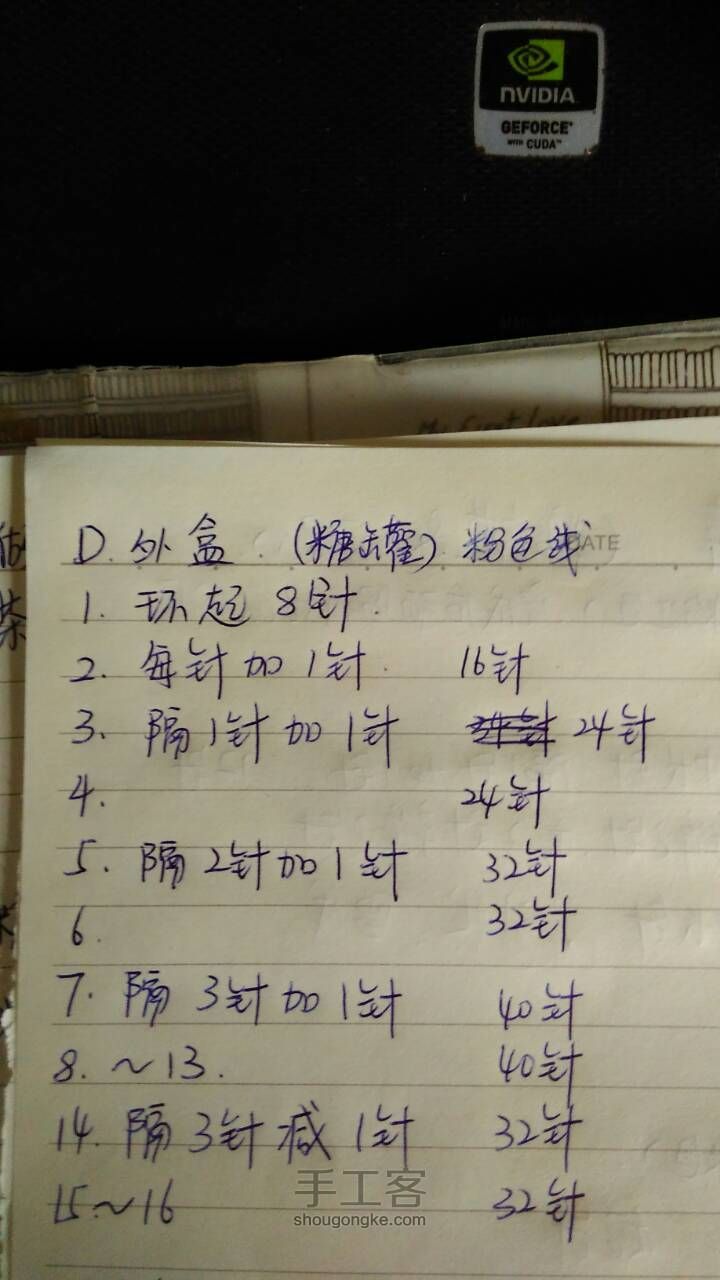 NVIDIA
GEFORCE
WITH CUDA™
My first love
D. 外盒 (糖罐) 粉色线 DATE
1. 环起 8针.
2. 每针加1针. 16针
3. 隔1针加1针 24针
4. 24针
5. 隔2针加1针 32针
6. 32针
7. 隔3针加1针 40针
8. ~13. 40针
14. 隔3针减1针 32针
15~16 32针
手工客
shougongke.com